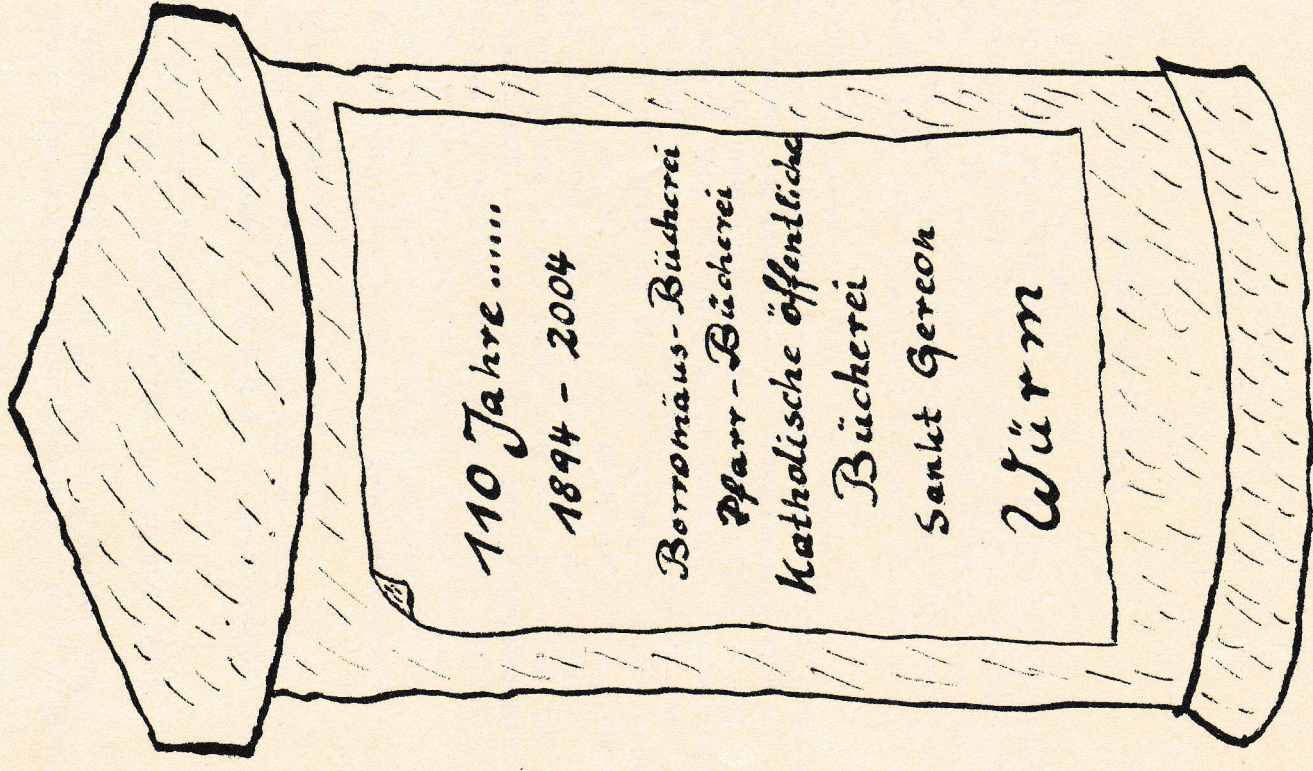 110 Jahre......
1894 - 2004
Borromäus-Bücherei
Pfarr-Bücherei
Katholische öffentliche
Bücherei
Sankt Gereon
Würm